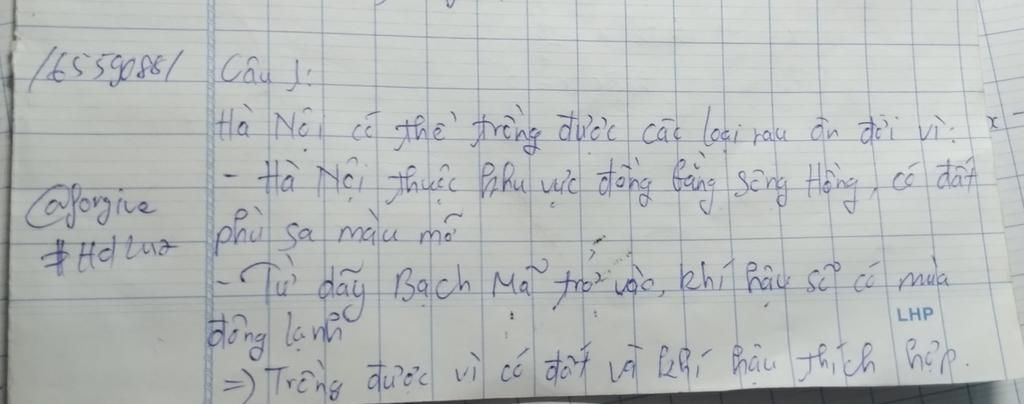 /6559088/ Câu 1:
Hà Nội có thể trồng được các loại rau ôn đới vì: x -
- Hà Nội thuộc khu vực đồng bằng sông Hồng, có đất
@forgive phù sa màu mỡ
- Từ dãy Bạch Mã trở vào, khí hậu sẽ có mùa
LHP
đông lạnh
=) Trồng được vì có đất và khí hậu thích hợp.